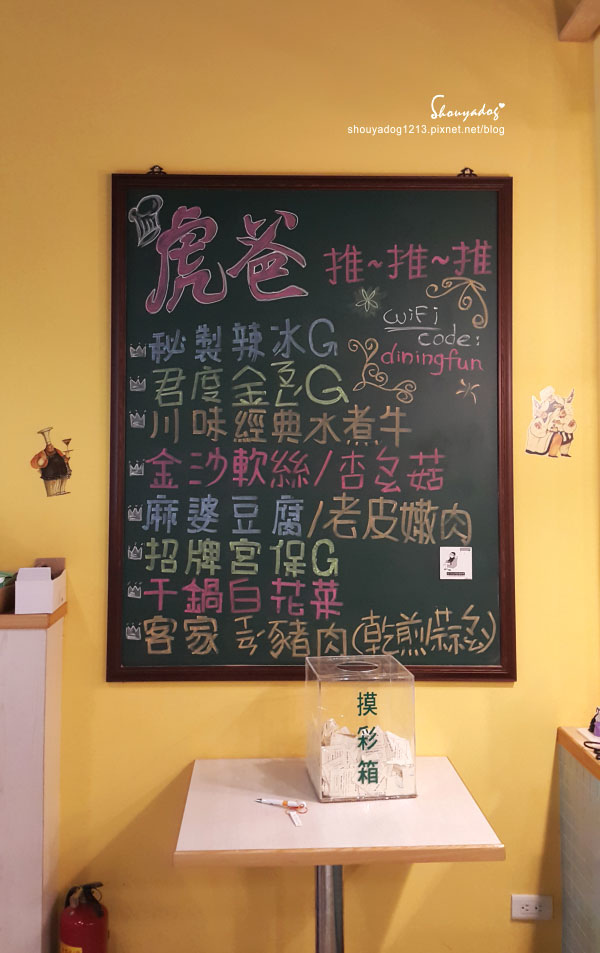 Shouyadog
shouyadog1213.pixnet.net/blog
虎爸 推~推~推
WiFi
code:
diningfun
秘製辣冰G
君度金乭G
川味經典水煮牛
金沙軟絲/杏乡菇
麻婆豆腐/老皮嫩肉
招牌宮保G
干鍋白花菜
客家 豬肉(乾煎蒜)
摸彩箱